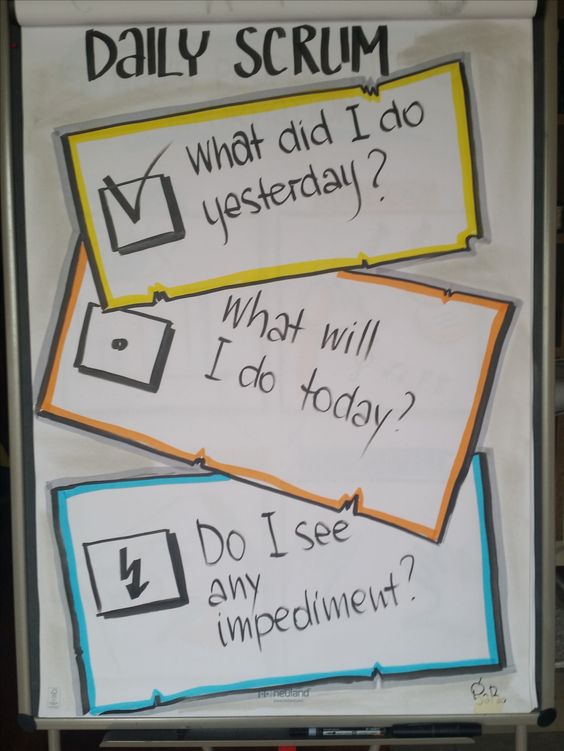 DaILY SCRUM
What did I do
yesterday?
What will
I do today?
Do I see
any
impediment?
neuland